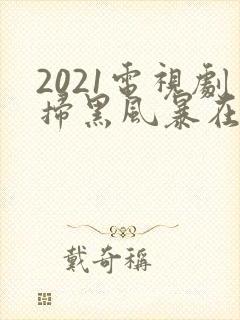 2021電視劇
掃黑風暴在
戴奇稱